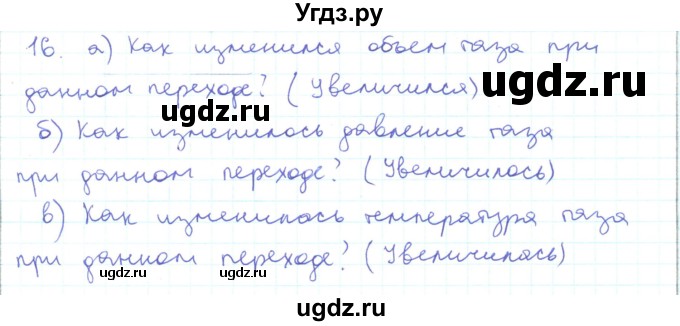 Угдз.ру
16. а) Как изменился объем газа при
данном переходе? (Увеличился)
ugdz.ru
ugdz.ru
б) Как изменилось давление газа
при данном переходе? (Увеличилось)
в) Как изменилась температура газа
при данном переходе? (Увеличилась)
ugdz.ru
ugdz.ru
ugdz.ru